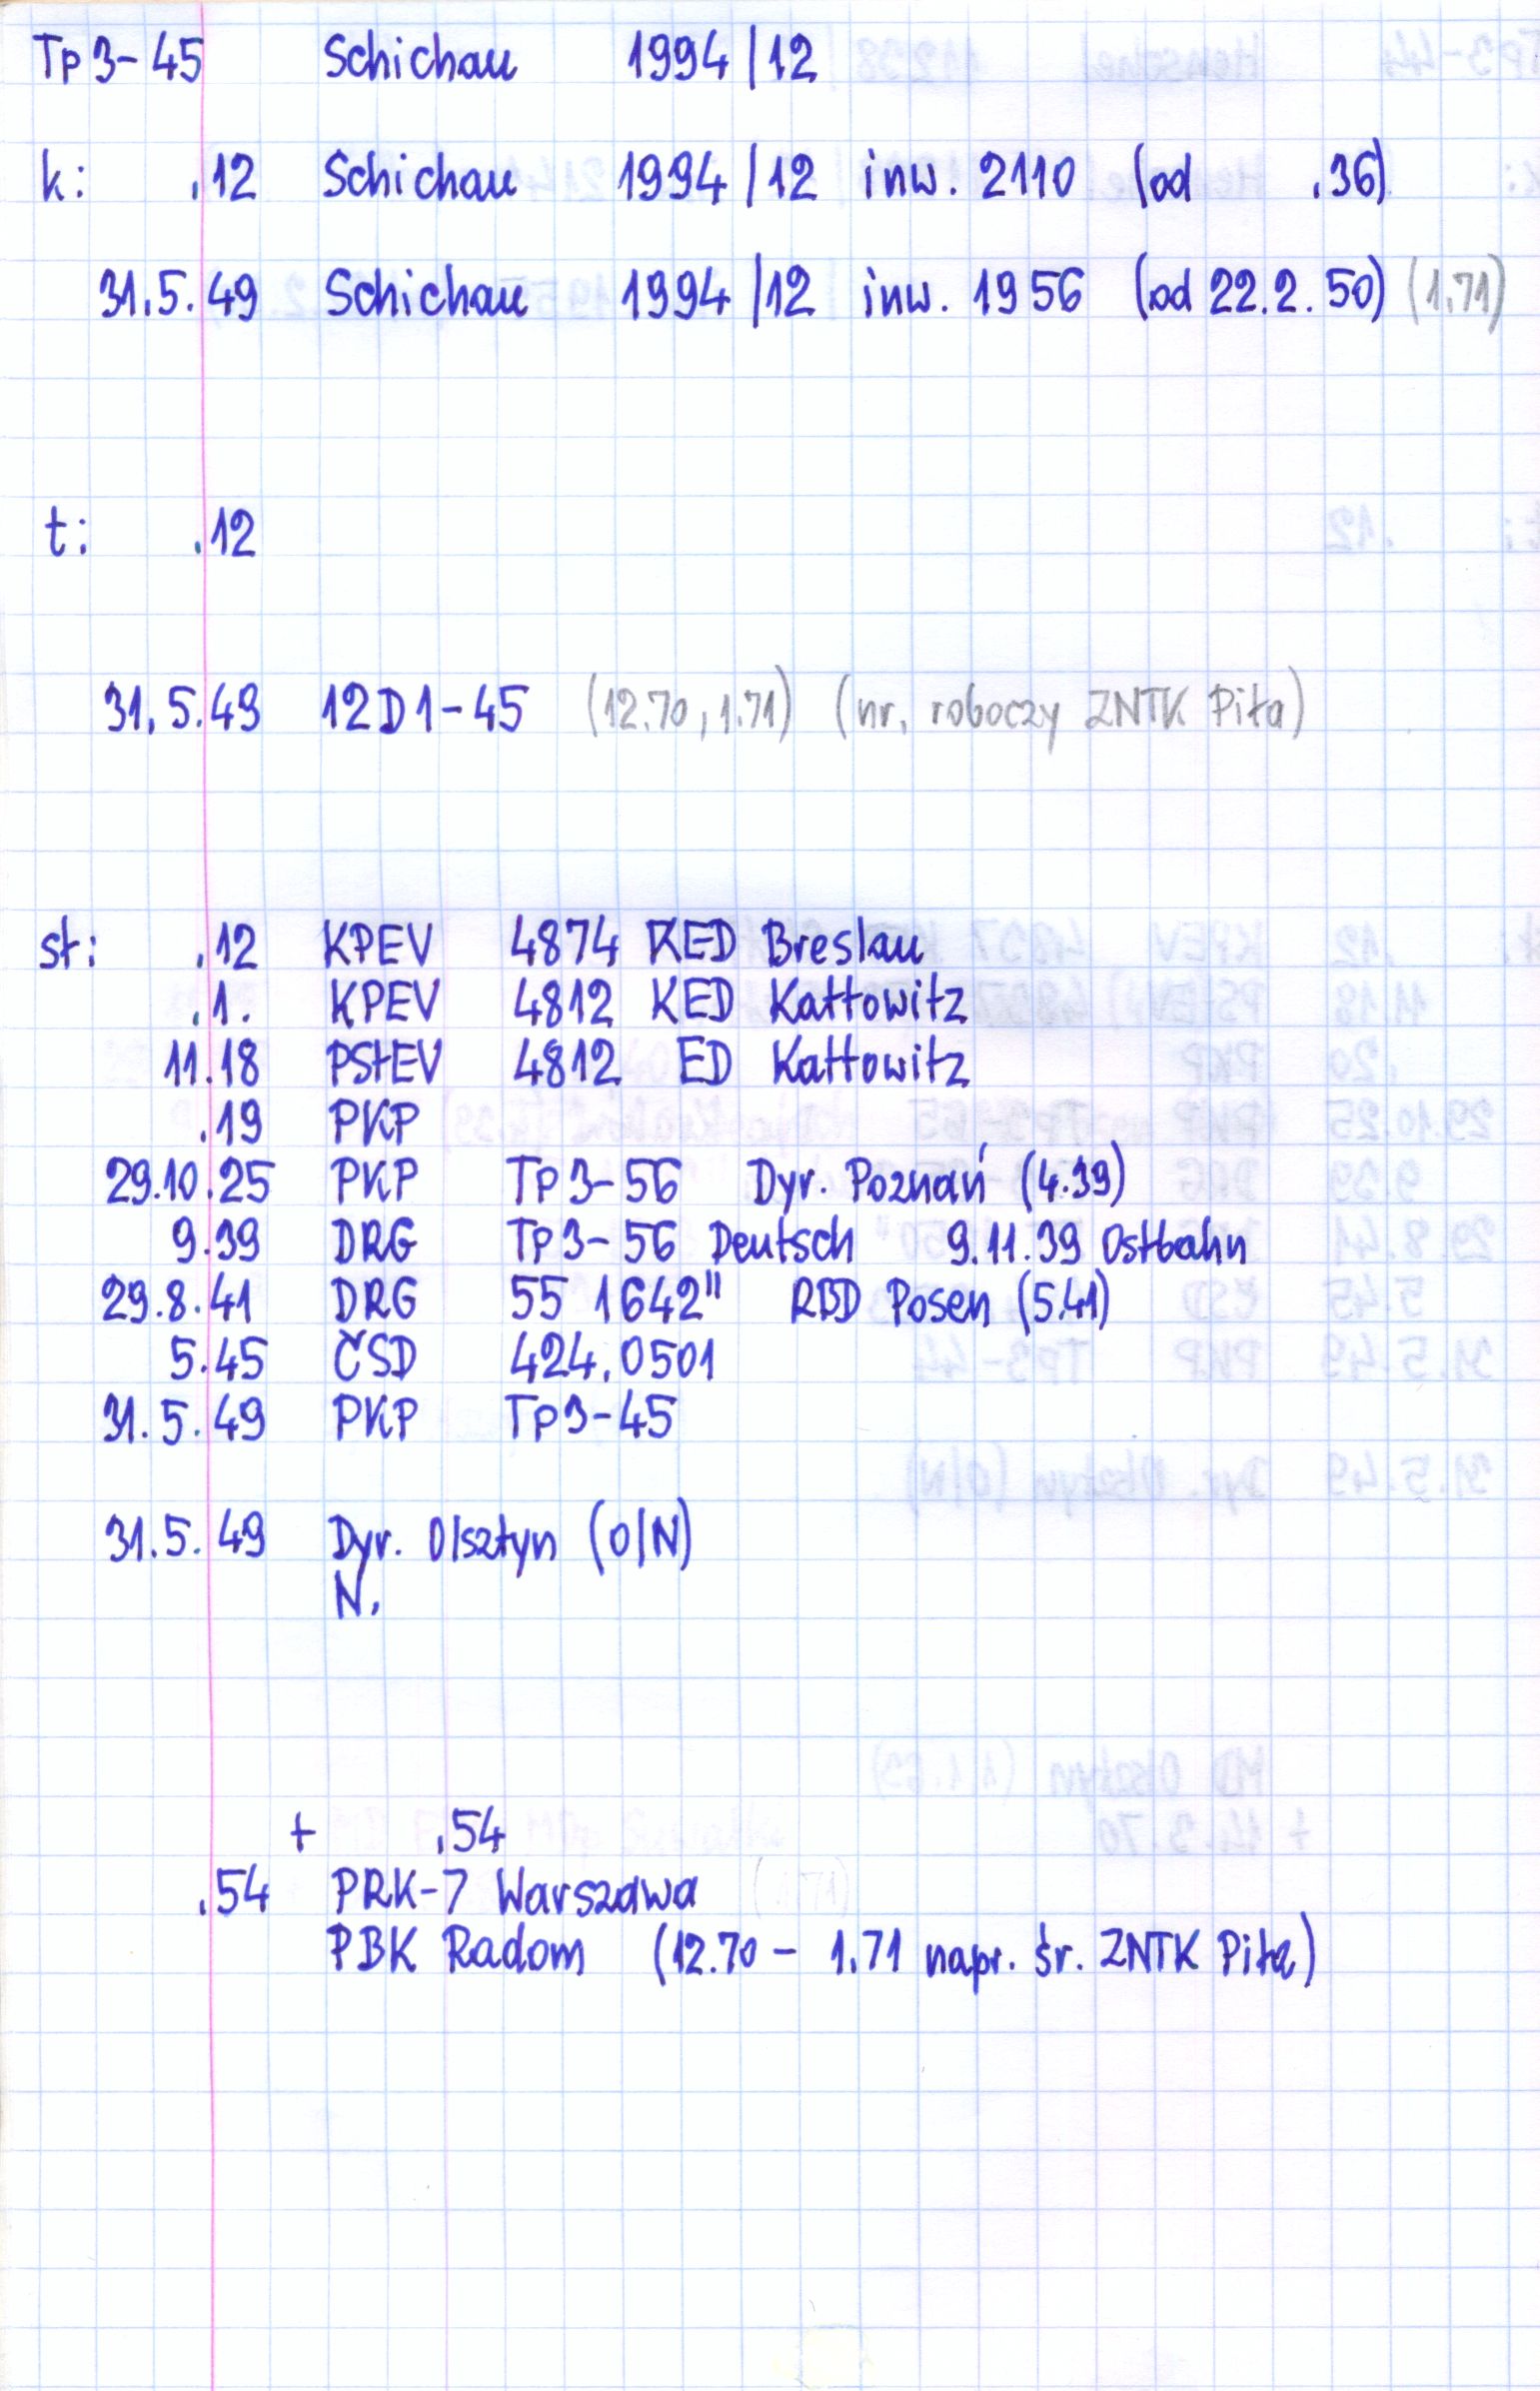 Tp3-45 Schichau 1994/12
k: .12 Schichau 1994/12 inw. 2110 (od .36)
31.5.49 Schichau 1994/12 inw. 1956 (od 22.2.50) (1.71)
t: .12
31.5.49 12D1-45 (12.70, 1.71) (nr. roboczy ZNTK Piła)
st: .12 KPEV 4874 KED Breslau
.1. KPEV 4812 KED Kattowitz
11.18 PStEV 4812 ED Kattowitz
.19 PKP
29.10.25 PKP Tp3-56 Dyr. Poznań (4.39)
9.39 DRG Tp3-56 Deutsch 9.11.39 Ostbahn
29.8.41 DRG 55 1642" RBD Posen (5.41)
5.45 ČSD 424.0501
31.5.49 PKP Tp3-45
31.5.49 Dyr. Olsztyn (O/N)
N.
+ .54
.54 PRK-7 Warszawa
PBK Radom (12.70 - 1.71 napr. śr. ZNTK Piła)